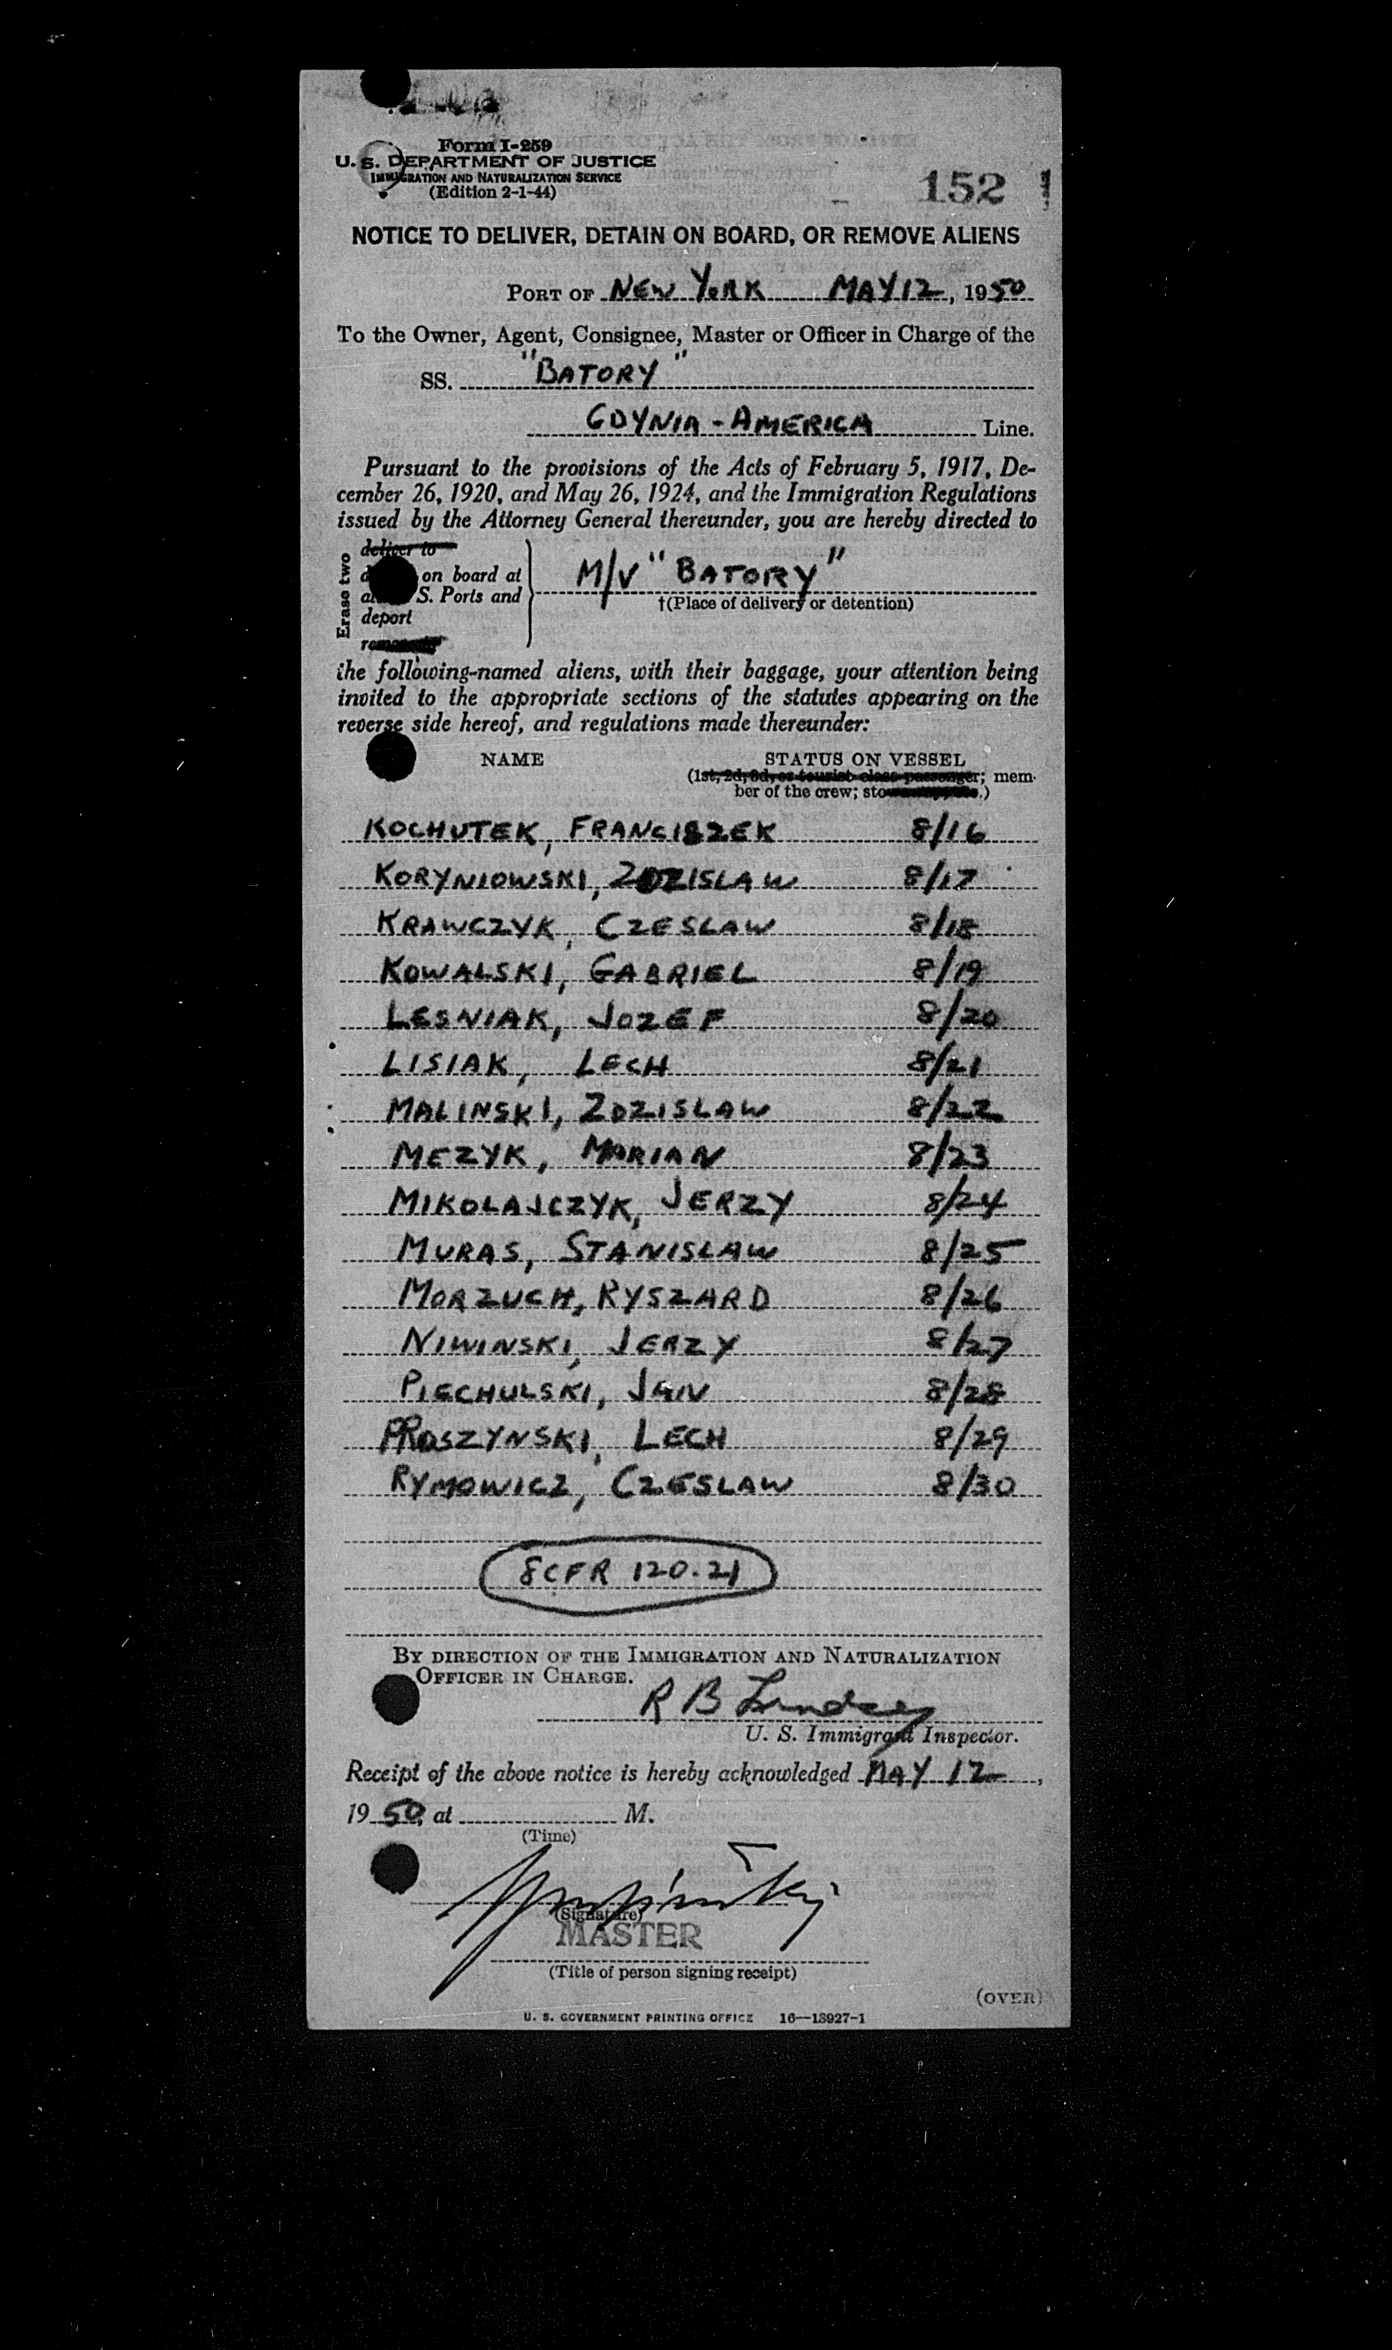 Form I-259
U. S. DEPARTMENT OF JUSTICE
IMMIGRATION AND NATURALIZATION SERVICE
(Edition 2-1-44)
152
NOTICE TO DELIVER, DETAIN ON BOARD, OR REMOVE ALIENS
PORT OF NEW YORK MAY 12, 1950
To the Owner, Agent, Consignee, Master or Officer in Charge of the
SS. "BATORY"
GDYNIA - AMERICA Line.
Pursuant to the provisions of the Acts of February 5, 1917, De-
cember 26, 1920, and May 26, 1924, and the Immigration Regulations
issued by the Attorney General thereunder, you are hereby directed to
Erase two
deliver to
on board at
S. Ports and
deport
M/V "BATORY"
†(Place of delivery or detention)
the following-named aliens, with their baggage, your attention being
invited to the appropriate sections of the statutes appearing on the
reverse side hereof, and regulations made thereunder:
NAME STATUS ON VESSEL
(1st, 2d, 3d, or tourist class passenger; mem-
ber of the crew; .)
KOCHUTEK, FRANCISZEK 8/16
KORYNIOWSKI, ZDZISLAW 8/17
KRAWCZYK, CZESLAW 8/18
KOWALSKI, GABRIEL 8/19
LESNIAK, JOZEF 8/20
LISIAK, LECH 8/21
MALINSKI, ZDZISLAW 8/22
MEZYK, MARIAN 8/23
MIKOLAJCZYK, JERZY 8/24
MURAS, STANISLAW 8/25
MORZUCH, RYSZARD 8/26
NIWINSKI, JERZY 8/27
PIECHULSKI, JAN 8/28
PROSZYNSKI, LECH 8/29
RYMOWICZ, CZESLAW 8/30
8 CFR 120.21
BY DIRECTION OF THE IMMIGRATION AND NATURALIZATION
OFFICER IN CHARGE.
R B Lindsey
U. S. Immigrant Inspector.
Receipt of the above notice is hereby acknowledged MAY 12,
1950, at M.
(Time)
(Signature)
MASTER
(Title of person signing receipt)
(OVER)
U. S. GOVERNMENT PRINTING OFFICE 16—13927-1